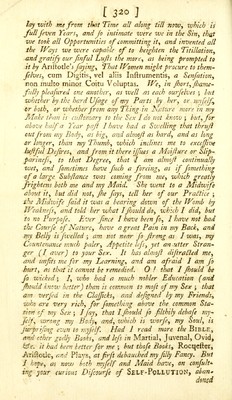 [ 320 ]
lay with me from that Time all along till now, which is
full seven Years, and so intimate were we in the Sin, that
we took all Opportunities of committing it, and invented all
the Ways we were capable of to heighten the Titillation,
and gratify our sinful Lusts the more, as being prompted to
it by Aristotle's saying, That Women might procure to them-
selves, cum Digitis, vel aliis Instrumentis, a Sensation,
non multo minor Coitu Voluptas. We, in short, shame-
fully pleasured one another, as well as each ourselves; but
whether by the hard Usage of my Parts by her, or myself,
or both, or whether from any Thing in Nature more in my
Make than is customary to the Sex I do not know; but, for
above half a Year past I have had a Swelling that thrust
out from my Body, as big, and almost as hard, and as long
or longer, than my Thumb, which inclines me to excessive
lustful Desires, and from it there issues a Moisture or Slip-
periness, to that Degree, that I am almost continually
wet, and sometimes have such a forcing, as if something
of a large Substance was coming from me, which greatly
frightens both me and my Maid. She went to a Midwife
about it, but did not, she says, tell her of our Practice;
the Midwife said it was a bearing down of the Womb by
Weakness, and told her what I should do, which I did, but
to no Purpose. Ever since I have been so, I have not had
the Course of Nature, have a great Pain in my Back, and
my Belly is swelled; am not near so strong as I was, my
Countenance much paler, Appetite less, yet an utter Stran-
ger (I aver) to your Sex. It has almost distracted me,
and unfits me for my Learning, and am afraid I am so
hurt, as that it cannot be remedied. O! that I should be
so wicked; I, who had a much nobler Education (and
should know better) than is common to most of my Sex; that
am versed in the Classicks, and designed by my Friends,
who are very rich, for something above the common Sta-
tion of my Sex; I say, that I should so filthily debase my-
self, wrong my Body, and, which is worse, my Soul, is
surprising even to myself. Had I read more the BIBLE,
and other godly Books, and less in Martial, Juvenal, Ovid,
&c. it had been better for me; but those Books, Rochester,
Aristotle, and Plays, at first debauched my silly Fancy. But
I hope, as now both myself and Maid have, on consult-
ing your curious Discourse of SELF-POLLUTION, aban-
doned